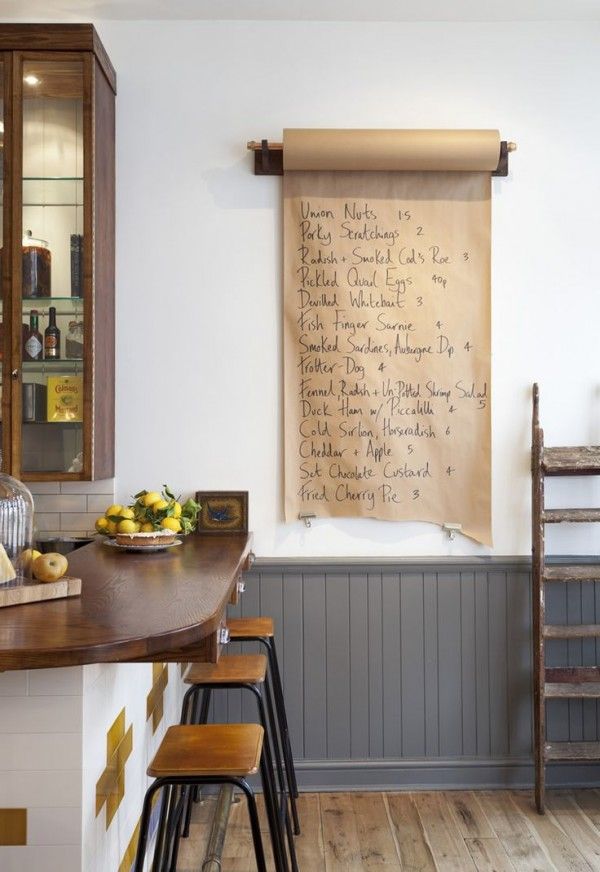 Union Nuts 1.5
Porky Scratchings 2
Radish + Smoked Cod's Roe 3
Pickled Quail Eggs 40p
Devilled Whitebait 3
Fish Finger Sarnie 4
Smoked Sardines, Aubergine Dip 4
Trotter-Dog 4
Fennel, Radish + Un-Potted Shrimp Salad 5
Duck Ham w/ Piccalilli 4
Cold Sirlion, Horseradish 6
Cheddar + Apple 5
Set Chocolate Custard 4
Fried Cherry Pie 3
Colman's
Mustard